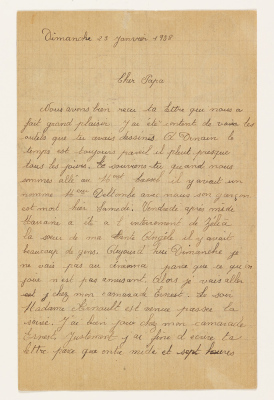 Dimanche 23 Janvier 1938
Cher Papa
Nous avons bien reçu ta lettre qui nous a
fait grand plaisir. J'ai été content de voir les
que tu avais dessinés. A Denain le
temps est toujours pareil il pleut presque
tous les jours. Te souviens-tu quand nous
sommes allé au il y avait un
nomme Delhombe avec nous son garçon
est mort hier Samedi. Vendredi après-midi
Maman a été à l'enterrement de Zélia
la sœur de ma tante Angèle il y avait
beaucoup de gens. Aujourd'hui Dimanche je
ne vais pas au cinéma parce que ce que on
joue n'est pas amusant. Alors je vais aller
chez mon camarade Ernest. Le soir
Madame est venue passer la
soirée. J'ai bien joué chez mon camarade
Ernest. Justement j'ai fini d'écrire ta
lettre parce que notre visite et sept heures